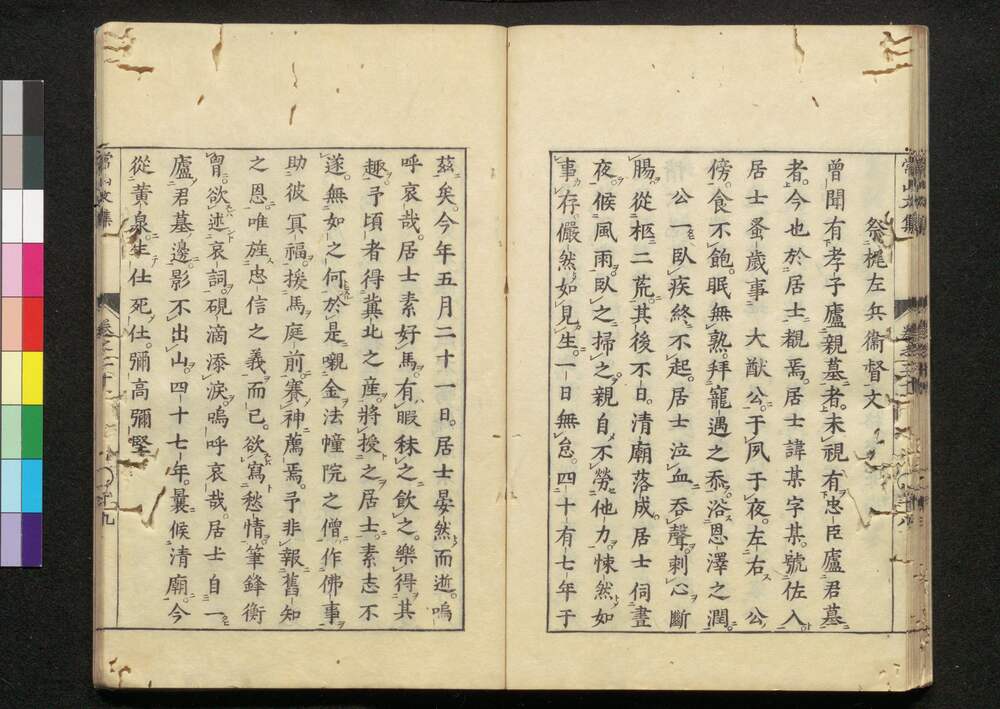 祭梶左兵衞督文
曾聞有孝子廬親墓者。未視有忠臣廬君墓
者。今也於居士覯焉。居士諱某字某。號佐入
居士。蚤歲事 大猷公。于夙于夜。左右 公
傍。食不飽。眠無熟。拜寵遇之忝。浴恩澤之潤。
公一臥疾終不起。居士泣血吞聲。刺心斷
腸。從柩二荒。其後不日。清廟落成。居士伺晝
夜。候風雨。臥之掃之。親自不勞他力。悚然如
事存。儼然如見生。一日無怠。四十有七年于
茲矣。今年五月二十一日。居士晏然而逝。嗚
呼哀哉。居士素好馬。有暇秣之飲之。樂得其
趣。予頃者得冀北之產。將授之居士。素志不
遂。無如之何。於是嚫金法幢院之僧。作佛事
助彼冥福。援馬庭前。賽神薦焉。予非報舊知
之恩。唯旌忠信之義而已。欲寫愁情。筆鋒衡
胷。欲述哀詞。硯滴添淚。嗚呼哀哉。居士自一
廬君墓邊。影不出山。四十七年。曩候清廟。今
從黃泉。生仕死仕。彌高彌堅。
常山文集
卷之二十
十九
常山文集
卷之二十
十八